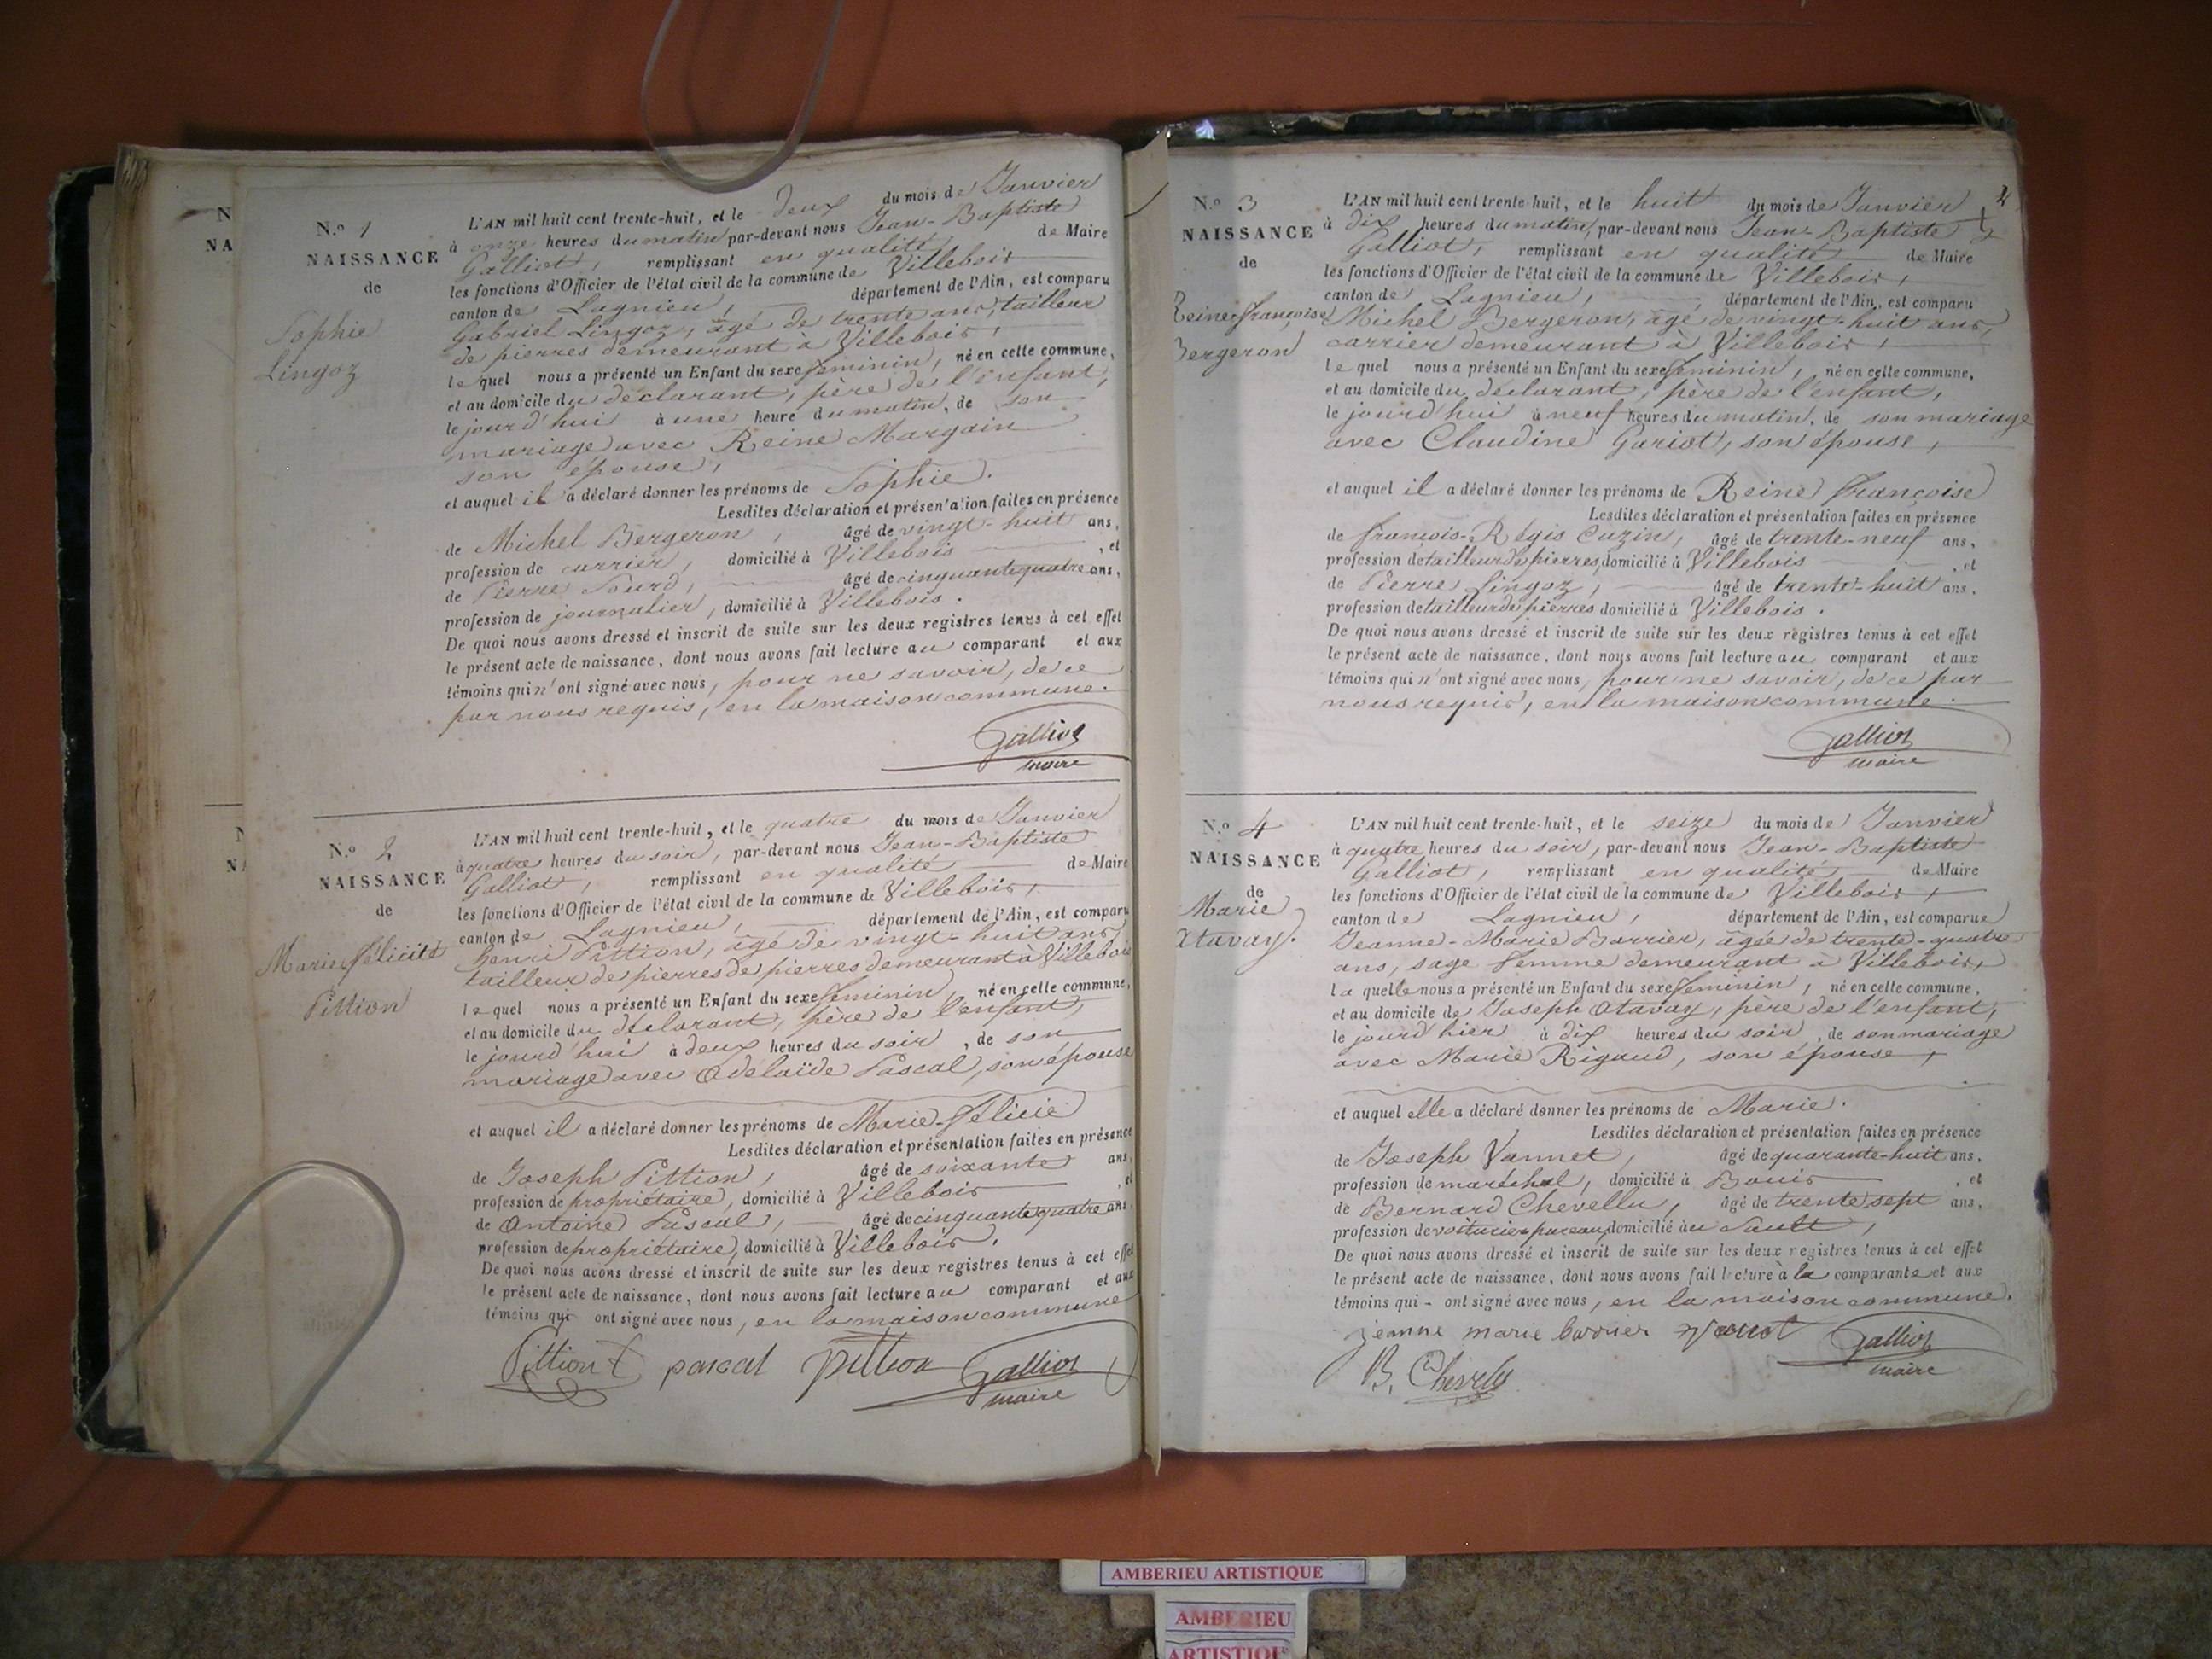 N
NA
N.
NA
N.o 1
NAISSANCE
de
Sophie
Lingoz
L'AN mil huit cent trente-huit, et le deux du mois de Janvier
à onze heures du matin par-devant nous Jean-Baptiste
Galliot, remplissant en qualité de Maire
les fonctions d'Officier de l'état civil de la commune de Villebois
canton de Lagnieu, département de l'Ain, est comparu
Gabriel Lingoz, âgé de trente ans, tailleur
de pierres demeurant à Villebois,
lequel nous a présenté un Enfant du sexe feminin, né en cette commune,
et au domicile du déclarant, père de l'enfant,
le jourd'hui à une heure du matin, de son
mariage avec Reine Margain
son épouse,
et auquel il a déclaré donner les prénoms de Sophie.
Lesdites déclaration et présentation faites en présence
de Michel Bergeron, âgé de vingt-huit ans,
profession de carrier, domicilié à Villebois, et
de Pierre Sourd, âgé de cinquante quatre ans,
profession de journalier, domicilié à Villebois.
De quoi nous avons dressé et inscrit de suite sur les deux registres tenus à cet effet
le présent acte de naissance, dont nous avons fait lecture au comparant et aux
témoins qui n'ont signé avec nous, pour ne savoir, de ce
par nous requis, en la maison commune.
Galliot
maire
N.o 2
NAISSANCE
de
Marie Félicité
Pittion
L'AN mil huit cent trente-huit, et le quatre du mois de Janvier
à quatre heures du soir, par-devant nous Jean-Baptiste
Galliot, remplissant en qualité de Maire
les fonctions d'Officier de l'état civil de la commune de Villebois,
canton de Lagnieu, département de l'Ain, est comparu
henri Pittion, âgé de vingt-huit ans
tailleur de pierres de pierres demeurant à Villebois
lequel nous a présenté un Enfant du sexe feminin, né en cette commune,
et au domicile du déclarant, père de l'enfant,
le jourd'hui à deux heures du soir, de son
mariage avec Adelaïde Pascal, son épouse
et auquel il a déclaré donner les prénoms de Marie-félicie
Lesdites déclaration et présentation faites en présence
de Joseph Pittion, âgé de soixante ans,
profession de propriétaire, domicilié à Villebois, et
de Antoine Pascal, âgé de cinquante quatre ans
profession de propriétaire, domicilié à Villebois.
De quoi nous avons dressé et inscrit de suite sur les deux registres tenus à cet effet
le présent acte de naissance, dont nous avons fait lecture au comparant et aux
témoins qui ont signé avec nous, en la maison commune
Pittion pascal pittion Galliot
maire
N.o 3
NAISSANCE
de
Reine françoise
Bergeron
L'AN mil huit cent trente-huit, et le huit du mois de Janvier
à dix heures du matin, par-devant nous Jean-Baptiste
Galliot, remplissant en qualité de Maire
les fonctions d'Officier de l'état civil de la commune de Villebois,
canton de Lagnieu, département de l'Ain, est comparu
Michel Bergeron, âgé de vingt-huit ans,
carrier demeurant à Villebois,
lequel nous a présenté un Enfant du sexe feminin, né en cette commune,
et au domicile du déclarant, père de l'enfant,
le jourd'hui à neuf heures du matin, de son mariage
avec Claudine Gariot, son épouse,
et auquel il a déclaré donner les prénoms de Reine françoise
Lesdites déclaration et présentation faites en présence
de françois-Régis Cuzin, âgé de trente-neuf ans,
profession de tailleur de pierres, domicilié à Villebois, et
de Pierre Lingoz, âgé de trente-huit ans,
profession de tailleur de pierres domicilié à Villebois.
De quoi nous avons dressé et inscrit de suite sur les deux registres tenus à cet effet
le présent acte de naissance, dont nous avons fait lecture au comparant et aux
témoins qui n'ont signé avec nous, pour ne savoir, de ce par
nous requis, en la maison commune.
Galliot
maire
N.o 4
NAISSANCE
de
Marie
Atavay.
L'AN mil huit cent trente-huit, et le seize du mois de Janvier
à quatre heures du soir, par-devant nous Jean-Baptiste
Galliot, remplissant en qualité de Maire
les fonctions d'Officier de l'état civil de la commune de Villebois,
canton de Lagnieu, département de l'Ain, est comparue
Jeanne-Marie Barrier, âgée de trente-quatre
ans, sage femme demeurant à Villebois,
laquelle nous a présenté un Enfant du sexe feminin, né en cette commune,
et au domicile de Joseph Atavay, père de l'enfant,
le jourd'hier à dix heures du soir, de son mariage
avec Marie Rigaud, son épouse,
et auquel elle a déclaré donner les prénoms de Marie.
Lesdites déclaration et présentation faites en présence
de Joseph Vannet, âgé de quarante-huit ans,
profession de maréchal, domicilié à Bouis, et
de Bernard Chevellu, âgé de trente sept ans,
profession de voiturier par eau, domicilié au Sault,
De quoi nous avons dressé et inscrit de suite sur les deux registres tenus à cet effet
le présent acte de naissance, dont nous avons fait lecture à la comparante et aux
témoins qui - ont signé avec nous, en la maison commune.
jeanne marie barrier Galliot
maire
AMBERIEU ARTISTIQUE
AMBERIEU
ARTISTIQUE